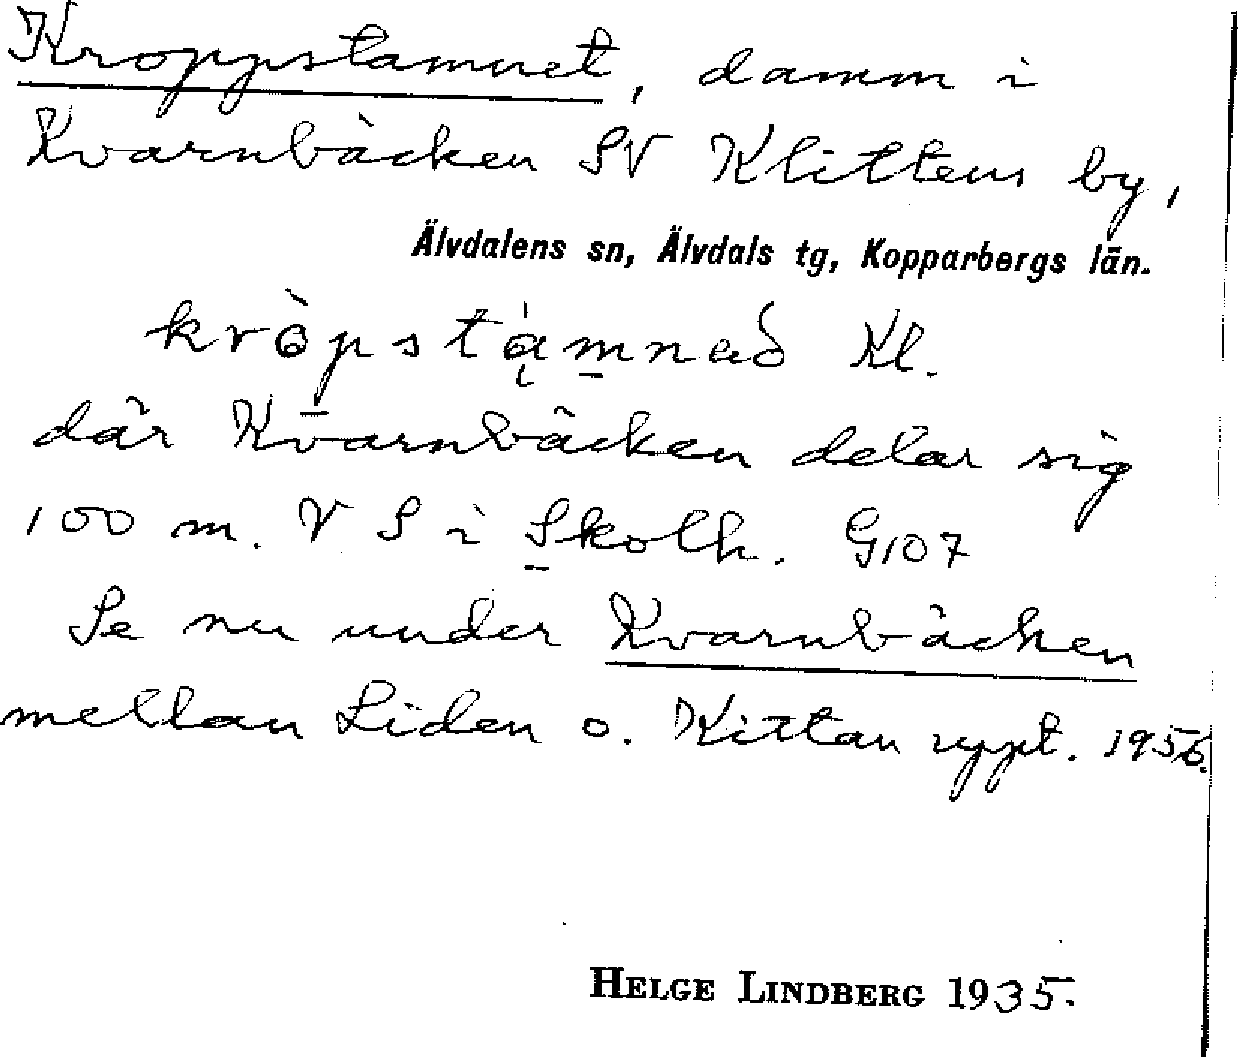 Kroppstamnet, damm i
Kvarnbäcken SV Klittens by,
Älvdalens sn, Älvdals tg, Kopparbergs län.
kròpstąmnað Kl.
där Kvarnbäcken delar sig
100 m. V S i Skolh. G107
Se nu under Kvarnbäcken
mellan Liden o. Kittan uppt. 1956.
HELGE LINDBERG 1935.